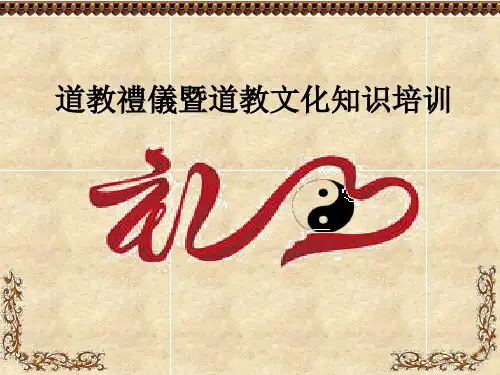 道教禮儀暨道教文化知识培训
礼